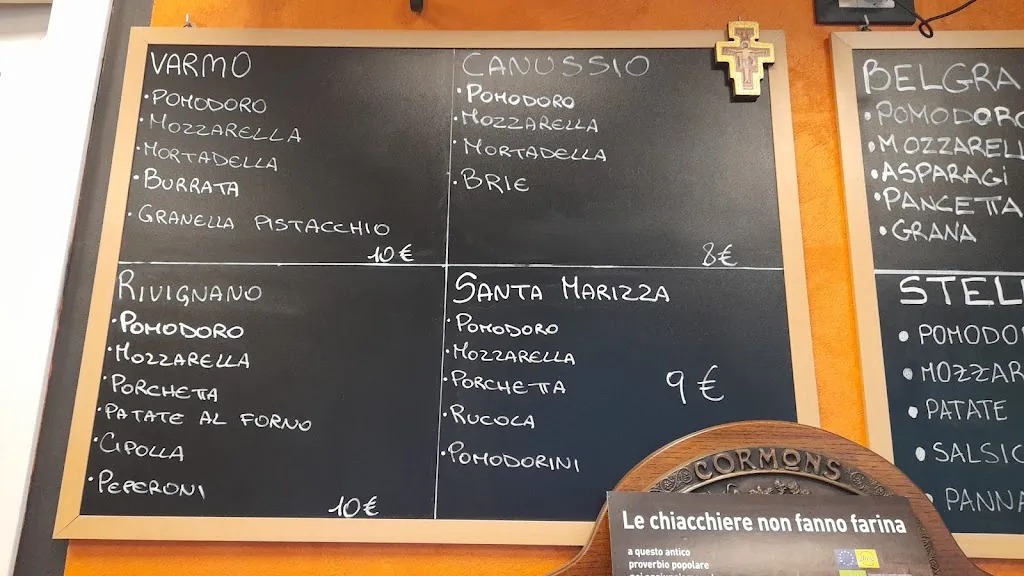 VARMO
• POMODORO
• MOZZARELLA
• MORTADELLA
• BURRATA
• GRANELLA PISTACCHIO
10€
CANUSSIO
• POMODORO
• MOZZARELLA
• MORTADELLA
• BRIE
8€
RIVIGNANO
• POMODORO
• MOZZARELLA
• PORCHETTA
• PATATE AL FORNO
• CIPOLLA
• PEPERONI
10€
SANTA MARIZZA
• POMODORO
• MOZZARELLA
• PORCHETTA
• RUCOLA
• POMODORINI
9€
BELGRA
• POMODORO
• MOZZARELL
• ASPARAGI
• PANCETTA
• GRANA
STEL
• POMODO
• MOZZAR
• PATATE
• SALSIC
• PANNA
CORMONS
Le chiacchiere non fanno farina
a questo antico
proverbio popolare